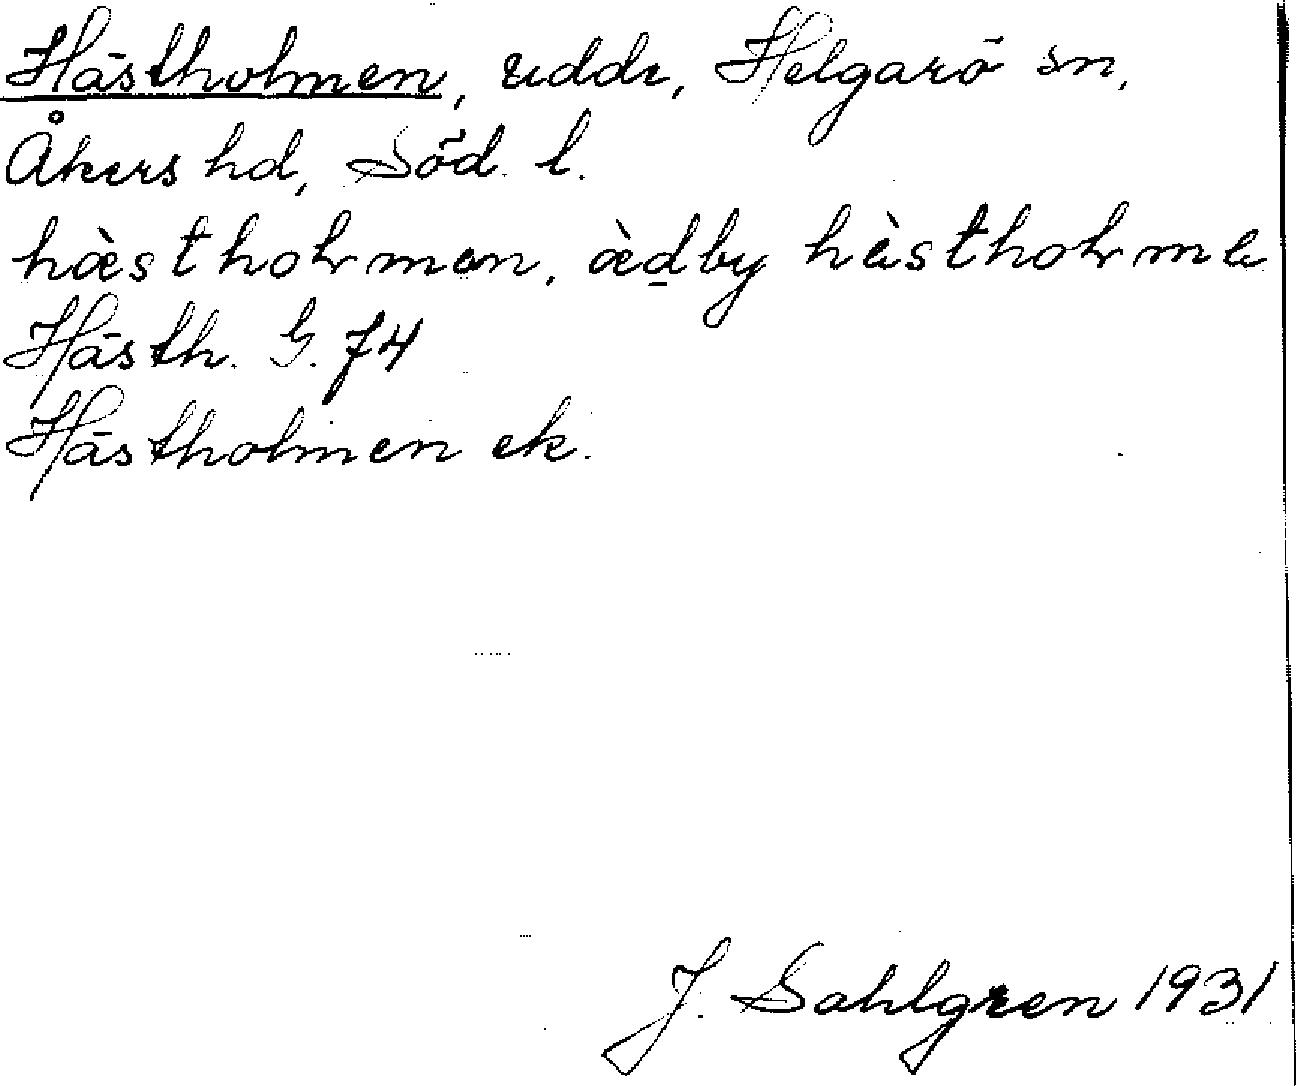 Hästholmen, udde, Helgarö sn,
Åkers hd, Söd. l.
hæ̀sthoɫmən, æ̀ḏby hæ̀sthoɫmə
Hästh. G. 74
Hästholmen ek.
J. Sahlgren 1931